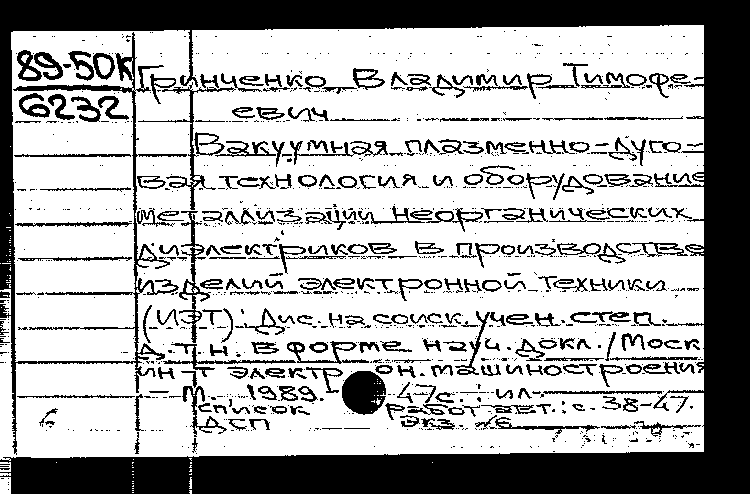 89-50К
6232
Гринченко, Владимир Тимофе-
евич
Вакуумная плазменно-дуго-
вая технология и оборудование
металлизации неорганических
диэлектриков в производстве
изделий электронной техники
(ИЭТ): Дис. на соиск. учен. степ.
д. т. н. в форме науч. докл. / Моск
ин-т электр он. машиностроения
- М. 1989. - 47с. : ил.
Список работ авт.: с. 38-47.
ДСП Экз.